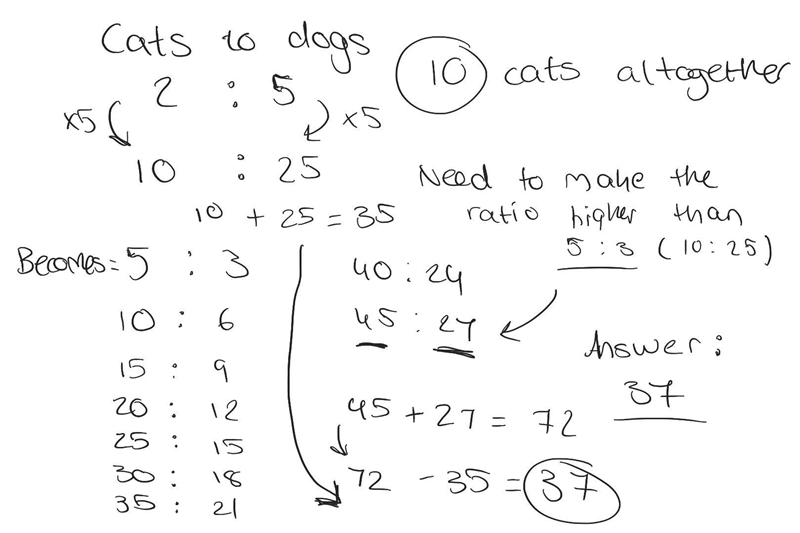 Cats to dogs
2 : 5
×5 ×5
10 : 25
10 + 25 = 35
10 cats altogether
Need to make the
ratio higher than
5 : 3 (10 : 25)
Becomes = 5 : 3
10 : 6
15 : 9
20 : 12
25 : 15
30 : 18
35 : 21
40 : 24
45 : 27
45 + 27 = 72
72 - 35 = 37
Answer :
37